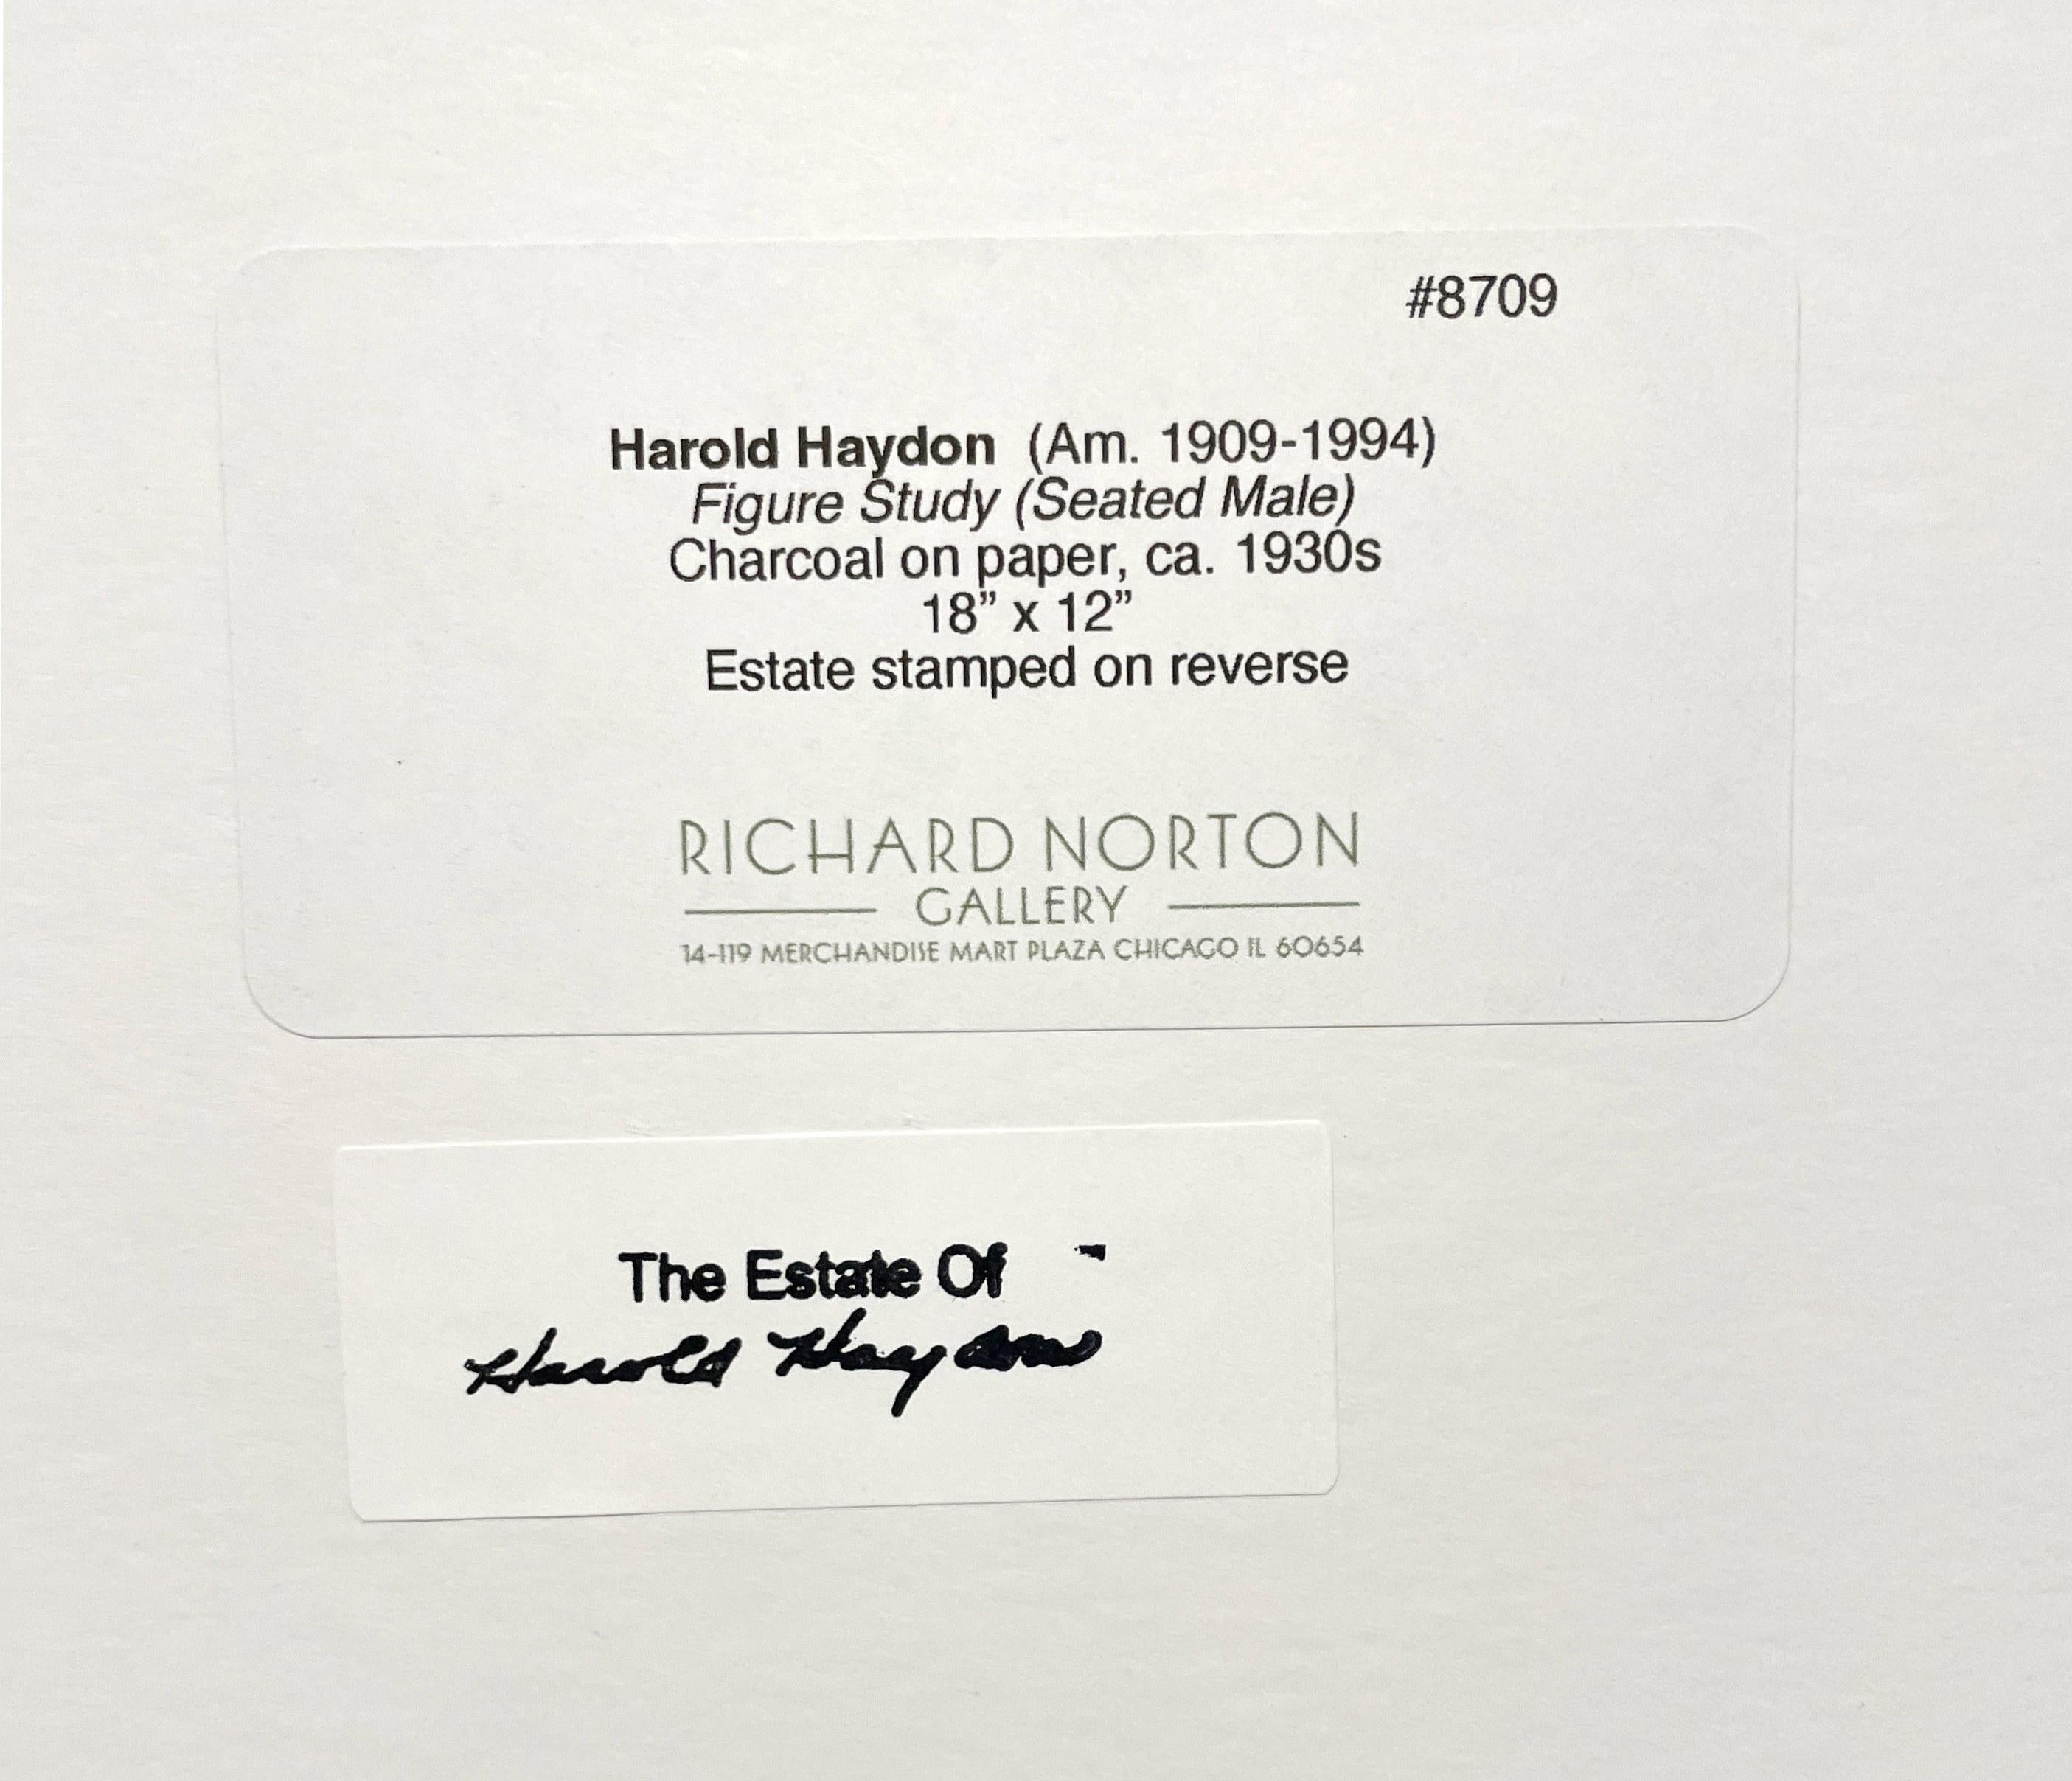 #8709
Harold Haydon (Am. 1909-1994)
Figure Study (Seated Male)
Charcoal on paper, ca. 1930s
18” x 12”
Estate stamped on reverse
RICHARD NORTON
GALLERY
14-119 MERCHANDISE MART PLAZA CHICAGO IL 60654
The Estate Of
Harold Haydon